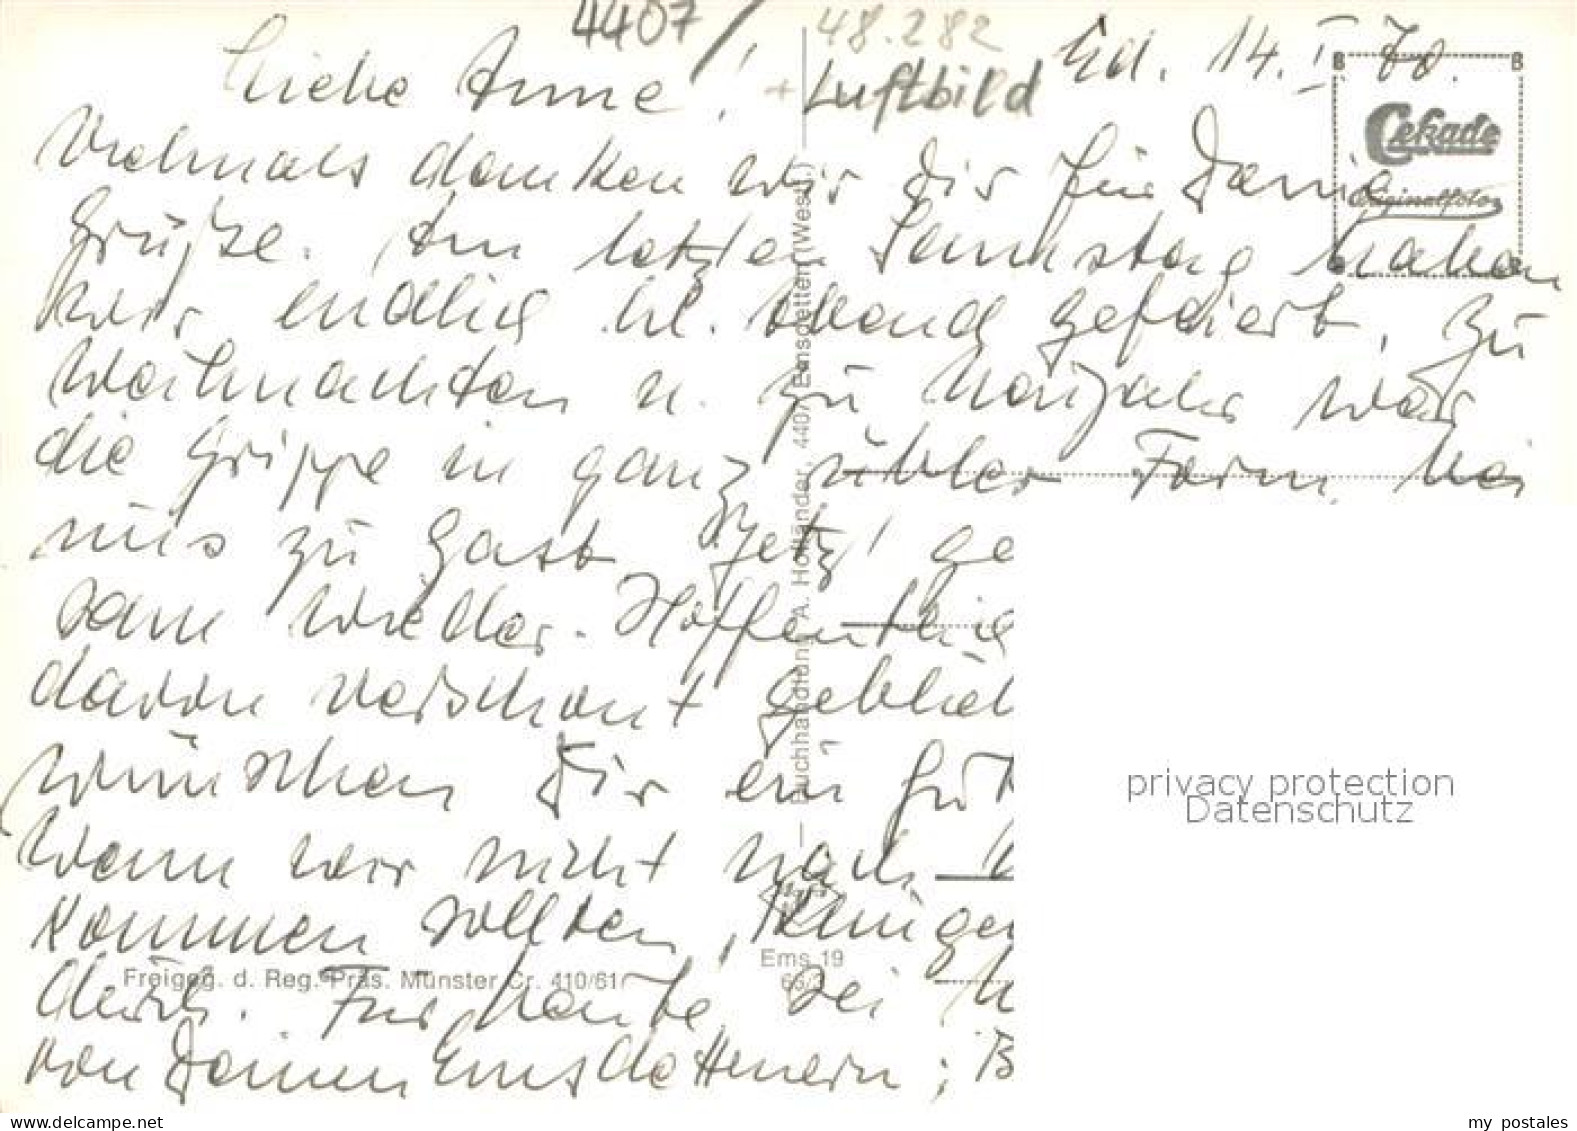 4407/
48.282
+ Luftbild
Ed. 14. I 70.
Cekade
Originalfoto
Liebe Anne!
Vielmals danken wir Dir für Deine
Grüße. Am letzten Samstag haben
wir endlich hl. Abend gefeiert, zu
Weihnachten u. zu Neujahr war
die Grippe in ganz übler Form bei
uns zu Gast. Jetzt ge
sam wieder. Hoffentlich
davon verschont geblieb
wünschen Dir ein gut
Wenn wir nicht nach
kommen sollten,
durch. Für heute sei
von Deinen Emsdettenern; B
Buchhandlung A. Holländer, 4407 Emsdetten (Westf.)
Freigeg. d. Reg. Präs. Münster Cr. 410/61
Ems 19
66/3
privacy protection
Datenschutz
www.delcampe.net
my_postales